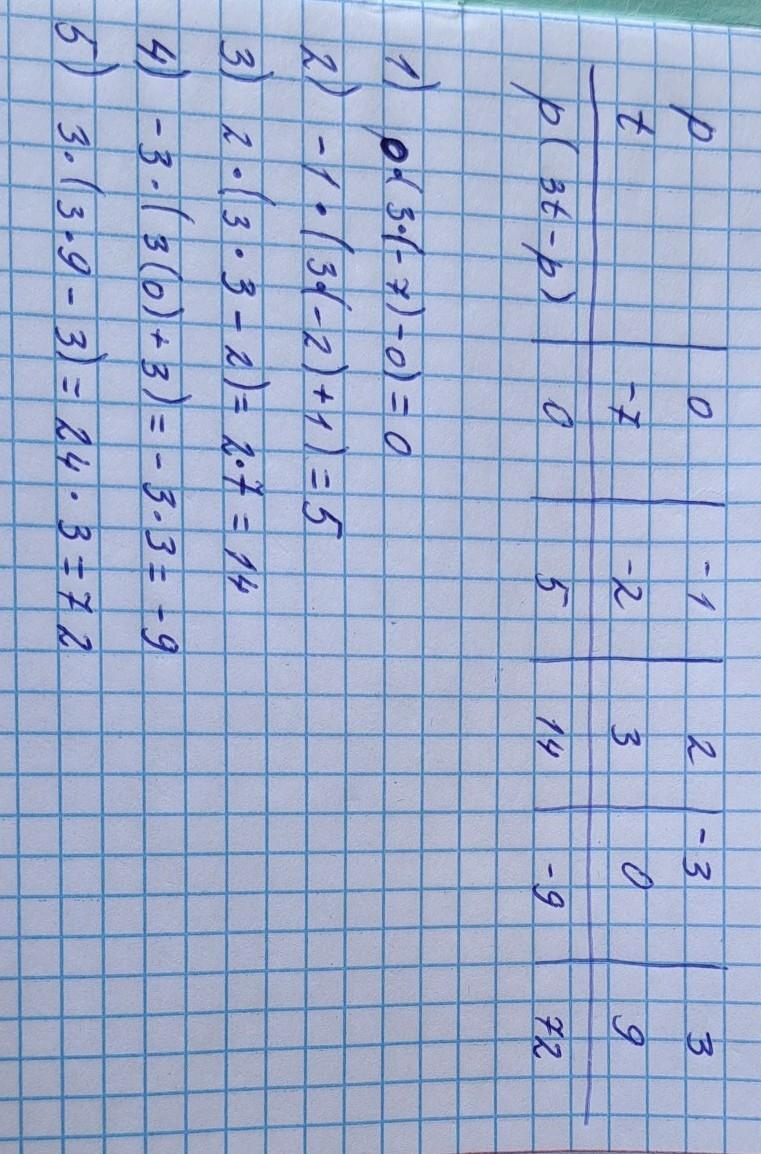 p 0 -1 2 -3 3
t -7 -2 3 0 9
p(3t-p) 0 5 14 -9 72
1) 0·(3·(-7)-0)=0
2) -1·(3·(-2)+1)=5
3) 2·(3·3-2)=2·7=14
4) -3·(3(0)+3)=-3·3=-9
5) 3·(3·9-3)=24·3=72